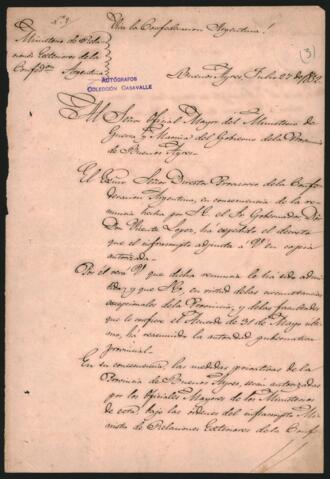 Nº 3
Viva la Confederacion Argentina!
Ministerio de Rela-
ciones Exteriores de la
Confedon. Argentina
(3)
AUTÓGRAFOS
COLECCIÓN CASAVALLE
Buenos Ayres, Julio 27 de 1852
Al Señor Oficial Mayor del Ministerio de
Guerra y Marina del Gobierno de la Prova.
de Buenos Ayres.
El Exmo. Señor Director Provisorio de la Confe-
deracion Argentina, en consecuencia de la re-
nuncia hecha por S.E. el Sr. Gobernador Dor.
Don Vicente Lopez, ha expedido el decreto
que el infrascripto adjunta á Vd. en copia
autorizada.
Por él verá Vd. que dicha renuncia le ha sido admi-
tida; y que S.E., en virtud de las circunstancias
excepcionales de la Provincia, y de las facultades
que le confiere el Acuerdo de 31 de Mayo últi-
mo, há reasumido la autoridad gubernativa
provincial.
En su consecuencia, las medidas gubernativas de la
Provincia de Buenos Ayres, seran autorizadas
por los Oficiales Mayores de los Ministerios
de esta, bajo las órdenes del infrascripto Mi-
nistro de Relaciones Exteriores de la Conf.